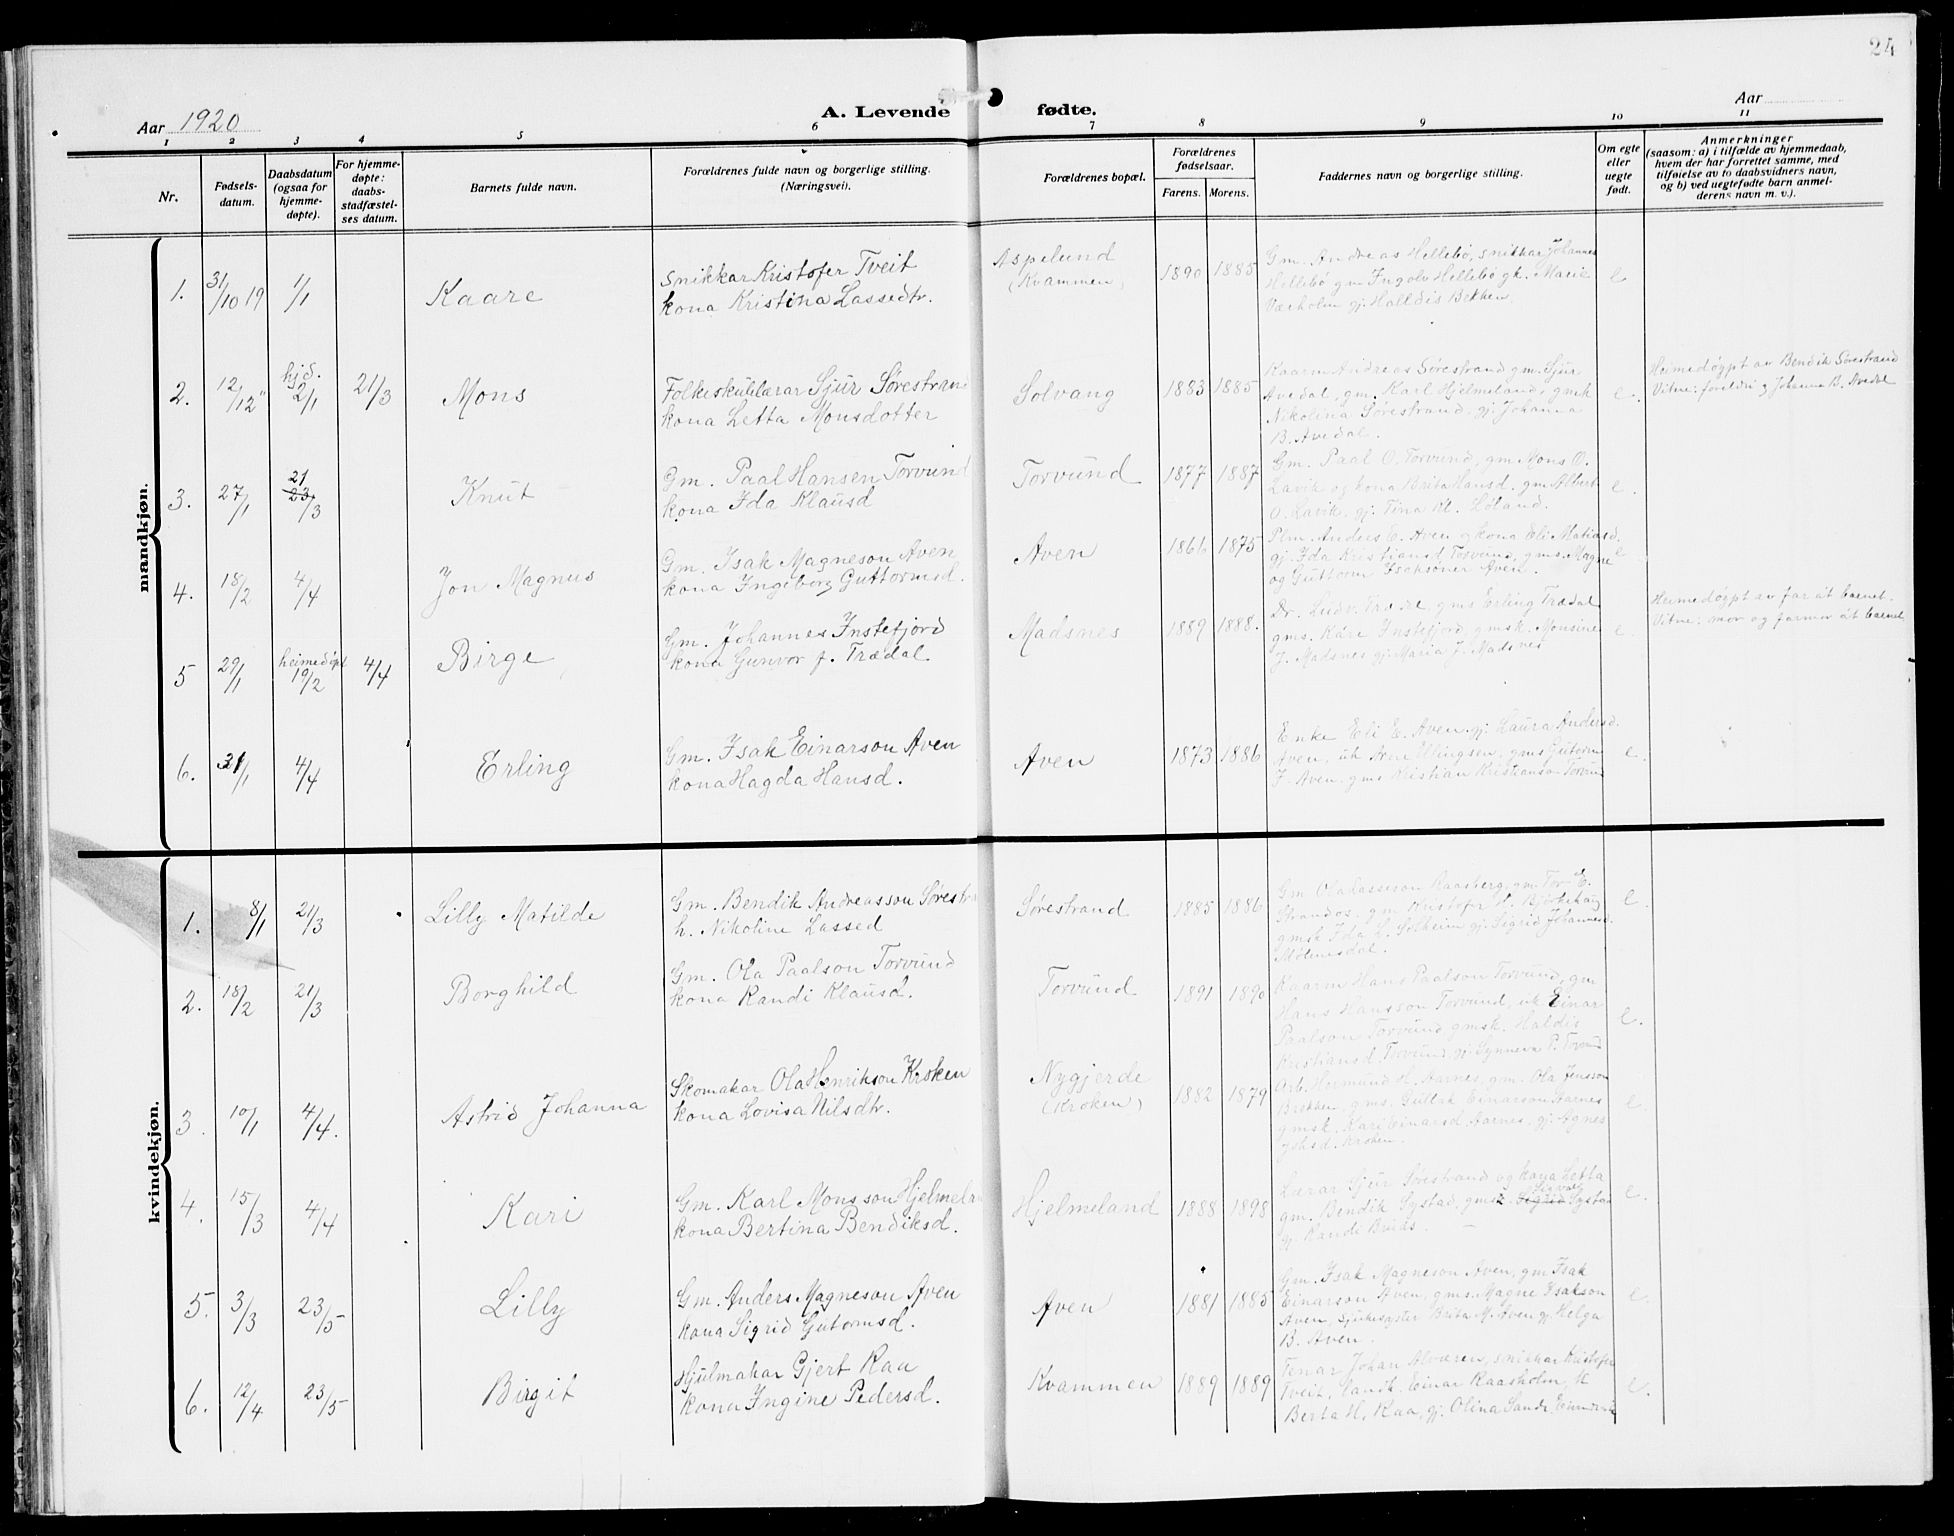 24
Aar 1920
A. Levende fødte.
Aar
1 2 3 4 5 6 7 8 9 10 11
Nr.
Fødselsdatum.
Daabsdatum (ogsaa for hjemmedøpte).
For hjemmedøpte: daabsstadfæstelses datum.
Barnets fulde navn.
Forældrenes fulde navn og borgerlige stilling. (Næringsvei).
Forældrenes bopæl.
Forældrenes fødselsaar.
Farens. Morens.
Faddernes navn og borgerlige stilling.
Om egte eller uegte født.
Anmerkninger
(saasom: a) i tilfælde av hjemmedaab,
hvem der har forrettet samme, med
tilføielse av to daabsvidners navn,
og b) ved uegtefødte barn anmel-
derens navn m. v.).
mandkjøn.
1. 31/10 19 1/1 Kaare
snikkar Kristofer Tveit
kona Kristina Lassedtr.
Aspelund
(Kvammen)
1890 1885
Gm. Andreas Hellebø, snikkar Johannes
Hellebø gm Ingolv Hellebø gk. Marie
Værholm gj. Halldis Bekken
e
2. 12/12 " hjd. 2/1 21/3 Mons
Folkeskulelærar Sjur Sørestrand
kona Letta Monsdotter
Solvang
1883 1885
Kaarm Andreas Sørestrand gm. Sjur
Avedal, gm. Karl Hjelmeland, gmk
Nikolina Sørestrand, gj. Johanna
B. Avedal.
e.
Heimedøypt av Bendik Sørestrand
Vitne: foreldri og Johanna B. Avedal
3. 27/1 21 23/3 Knut
Gm. Paal Hansen Torvund
kona Ida Klausd
Torvund
1877 1887
Gm. Paal O. Torvund, gm Mons O.
Lavik og kona Brita Hansd. gm Albert
O. Lavik, gj. Tina Kl. Løland.
e.
4. 18/2 4/4 Jon Magnus
Gm. Isak Magneson Aven
kona Ingeborg Guttormsd.
Aven
1866 1875
Plm. Anders E. Aven og kona Eli Matiasd.
gj. Ida Kristiansd Torvund, gms. Magne
og Guttorm Isaksøner Aven.
e
5 29/1 heimedøpt 19/2 4/4 Birge
Gm. Johannes Instefjord
kona Gunvor f. Trædal
Madsnes
1889 1888.
Dr. Ludv. Trædal, gms Erling Trædal
gms. Kåre Instefjord, gmsk. Monsine
J. Madsnes gj. Maria J. Madsnes
e.
Heimedøypt av far åt barnet.
Vitne: mor og farmor åt barnet
6. 31/1 4/4 Erling
Gm. Isak Einarson Aven
kona Hagda Hansd.
Aven
1873 1886
Enke Eli E. Aven, gj. Laura Andersd.
Aven, uk Arne Ellingsen, gms Gutorm
J. Aven, gms Kristian Kristianson Torvund
e.
kvindekjøn.
1. 8/1 21/3 Lilly Matilde
Gm. Bendik Andreasson Sørestra
h. Nikoline Lassed
Sørestrand
1885 1886
Gm Ola Lasseson Raasberg, gm. Tor E.
Grandos. gm Kristofer A. Bjørkehaug
gmsk Ida L. Solheim gj. Sigrid Johannesd.
Mølmesdal.
e.
2. 18/2 21/3 Borghild
Gm. Ola Paalson Torvund
kona Randi Klausd.
Torvund
1891 1890
Kaarm Hans Paalson Torvund, gm
Hans Hansson Torvund, uk Einar
Paalson Torvund, gmsk. Haldis
Kristiansd Torvund, gj. Synneva P. Torvund
e.
3. 10/1 4/4. Astrid Johanna
Skomakar Ola Henrikson Kroken
kona Lovisa Nilsdtr.
Nygjerde
(Kroken)
1882 1879
Arb. Hermund H. Aarnes, gm. Ola Jensson
Brekken, gms. Gullak Einarson Aarnes
gmsk. Kari Einarsd. Aarnes, gj. Agnes
Kroken.
e.
4. 15/3 4/4 Kari
Gm. Karl Monsson Hjelmeland
kona Bertina Bendiksd.
Hjelmeland
1888 1898
Lærar Sjur Sørestrand og kona Letta
gm. Bendik Systad, gmsk. Sigrid Systad
gj. Randi
e.
5. 3/3 23/5 Lilly
Gm. Anders Magneson Aven
kona Sigrid Gutormsd.
Aven
1881 1885
Gm. Isak Magneson Aven, gm Isak
Einarson Aven, gms. Magne Isakson
Aven, sjukesyster Brita M. Aven gj. Helga
B. Aven.
e.
6. 12/4 23/5 Birgit
Hjulmakar Gjert Raa
kona Ingine Pedersd.
Kvammen
1889 1889
Tenar Johan Alværen, snikkar Kristofer
Tveit, Lavik, Einar Raasholm, k
Berta H. Raa, gj. Olina Sande,
e.